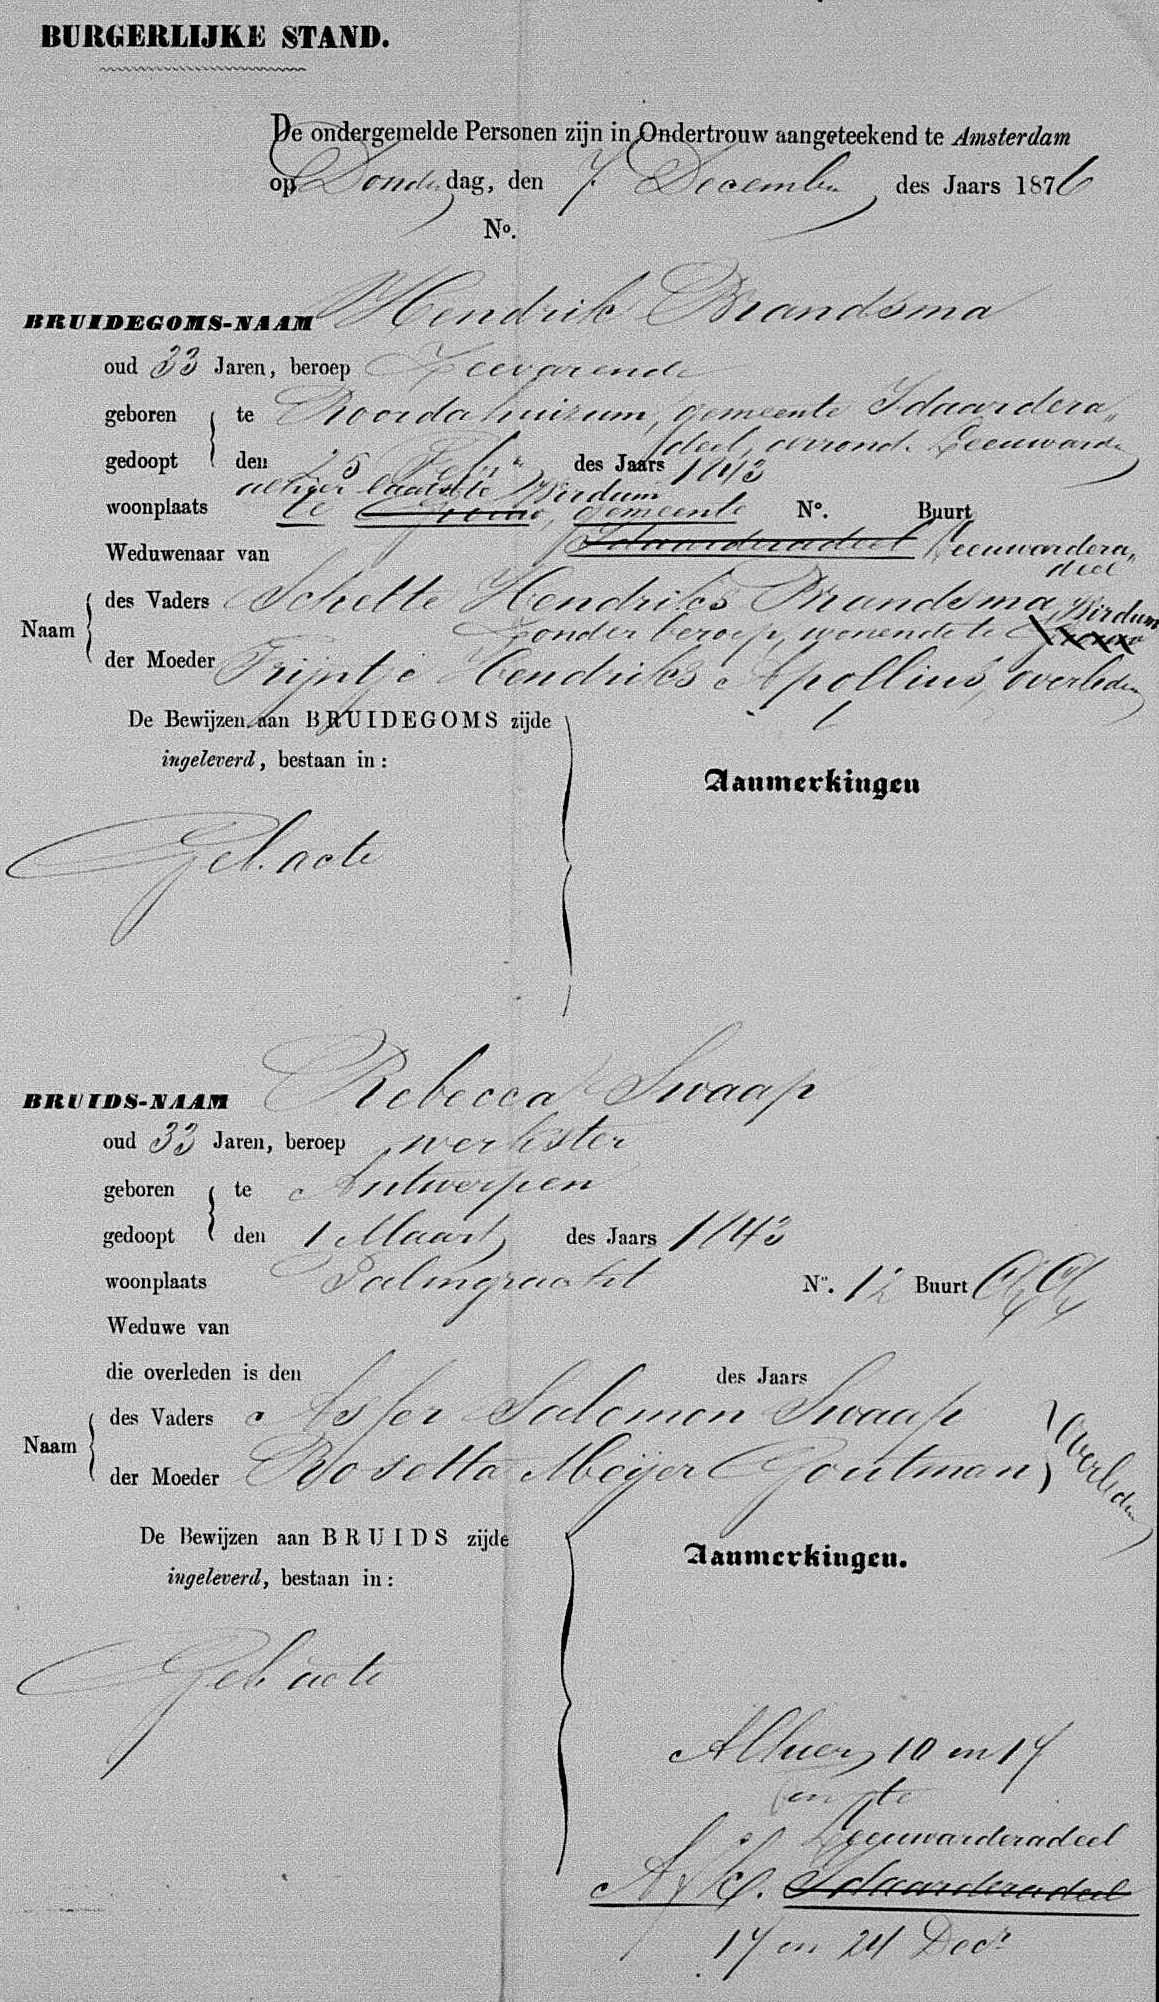 BURGERLIJKE STAND.
De ondergemelde Personen zijn in Ondertrouw aangeteekend te Amsterdam
op Donderdag, den 7 December des Jaars 1876
No.
BRUIDEGOMS-NAAM Hendrik Brandsma
oud 33 Jaren, beroep Zeevarende
geboren te Roordahuizum, gemeente Idaardera„
deel, arrond. Leeuwarden
gedoopt den 25 Febr. des Jaars 1843
alhier laatste Wirdum
woonplaats te Grouw, gemeente No. Buurt
Idaarderadeel Leeuwardera„
deel
Weduwenaar van
Naam des Vaders Schelte Hendriks Brandsma, Wirdum
zonder beroep, wonende te Grouw
der Moeder Trijntje Hendriks Apollius, overleden
De Bewijzen aan BRUIDEGOMS zijde
ingeleverd, bestaan in:
Aanmerkingen
Geb. acte
BRUIDS-NAAM Rebecca Swaap
oud 33 Jaren, beroep werkster
geboren te Antwerpen
gedoopt den 1 Maart des Jaars 1843
woonplaats Palmgracht No. 12 Buurt
Weduwe van
die overleden is den des Jaars
Naam des Vaders Asser Salomon Swaap
der Moeder Rosetta Meijer Goutman overleden
De Bewijzen aan BRUIDS zijde
ingeleverd, bestaan in:
Aanmerkingen.
Geb. acte
Alhier, 10 en 17
en te
Leeuwarderadeel
Idaarderadeel
17 en 24 Decr